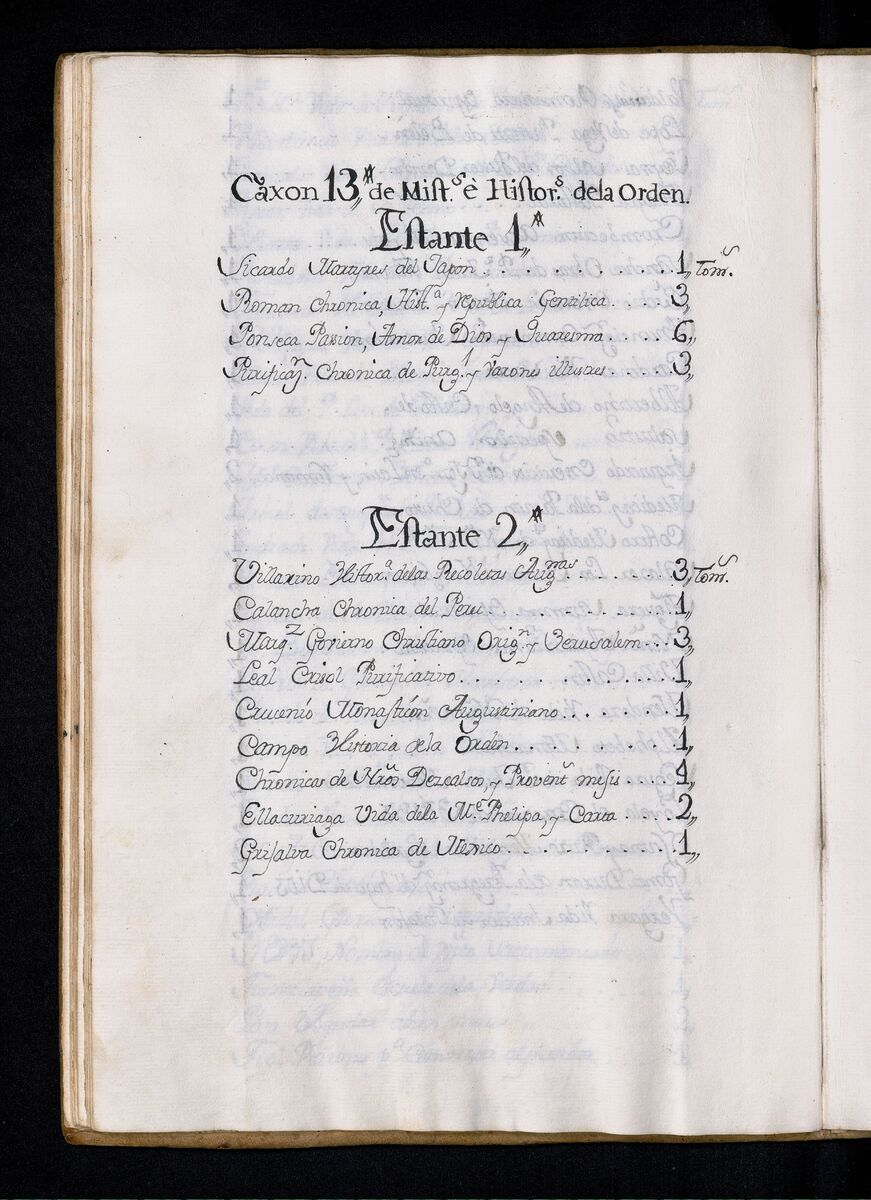 Cãxon 13,, de Mist.s è Histor.s dela Orden.
Estante 1,,
Sicardo Martyres del Japòn . . . . . . . . . 1,, tom.s
Roman Chronica, Hist.a y republica Gentilica . 3,,
Fonseca Passion, Amor de Dios, y Quaresma . . . . . 6,,
Purifican. Chronica de Purg.l y Varones illustres . . . 3,,
Estante 2,,
Villarino Histor.a delas Recoletas Aug.nas . . . . . . 3,, Tom.s
Calancha Chronica del Peru . . . . . . . . . 1,,
Marq.z Govierno Christiano, Orig.n y Jerusalem . . . 3,,
Leal Crisol Purificativo . . . . . . . . . . 1,,
Crucenio Monasticòn Augustiniano . . . . . . 1,,
Campo Historia dela Orden . . . . . . . . . 1,,
Chronicas de Nros Dezcalsos, y Provent.s mesis . . . . 4,,
Ellacuriaga Vida dela M.e Phelipa, y Carta . . . . 2,,
Grisalva Chronica de Mexico . . . . . . . . . 1,,